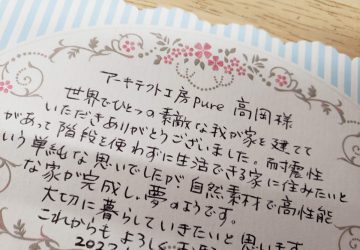 アーキテクト工房pure 高岡様
世界でひとつの素敵な我が家を建てて
いただきありがとうございました。耐震性
があって階段を使わずに生活できる家に住みたいと
いう単純な思いでしたが、自然素材で高性能
な家が完成し、夢のようです。
大切に暮らしていきたいと思います。
これからも よろしく
2022